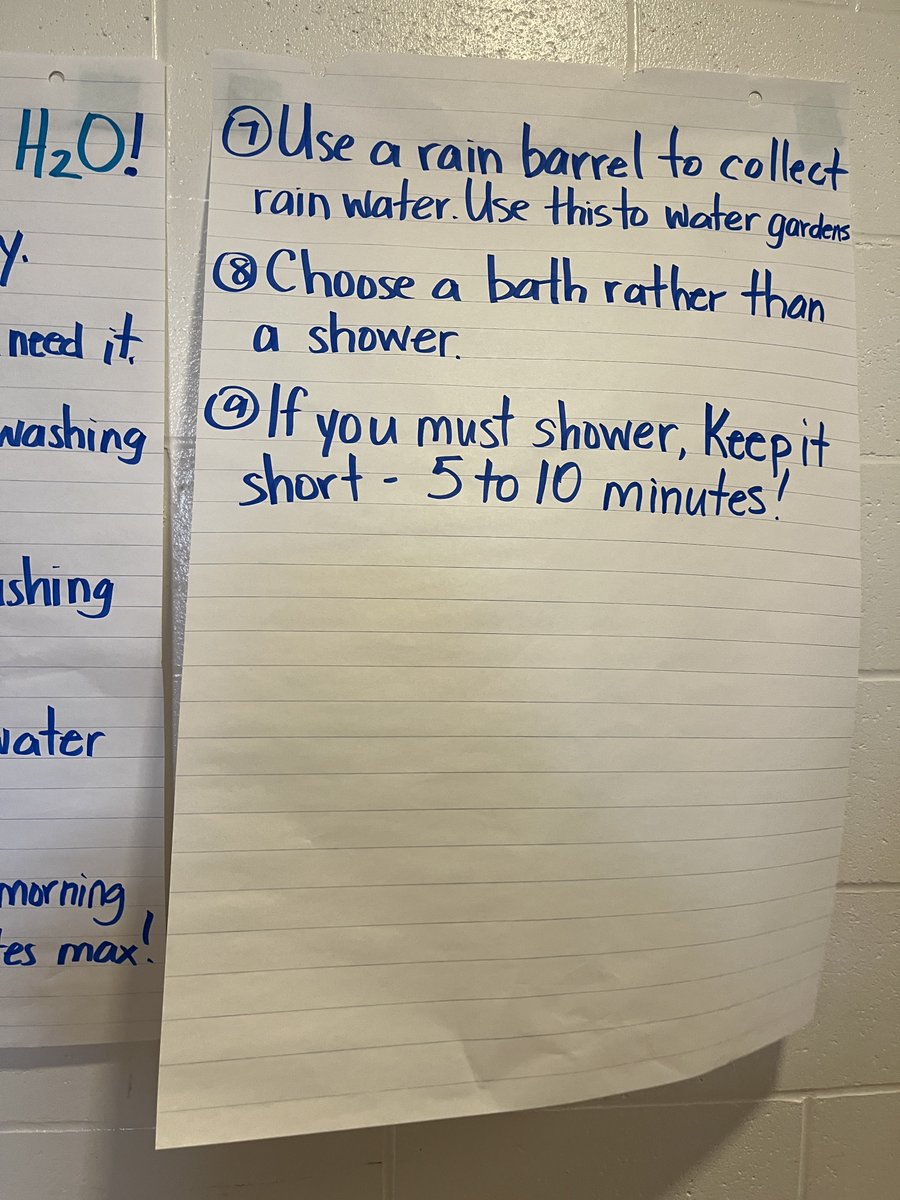 H₂O!
y.
need it.
washing
shing
water
morning
tes max!
⑦ Use a rain barrel to collect
rain water. Use this to water gardens
⑧ Choose a bath rather than
a shower.
⑨ If you must shower, Keep it
short - 5 to 10 minutes!